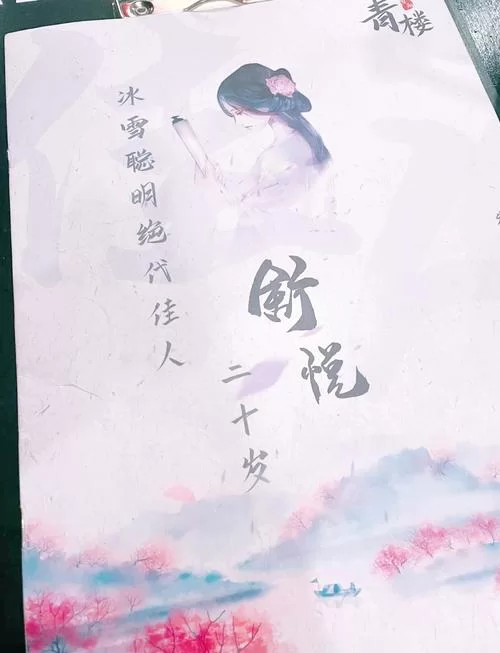 青楼
冰雪聪明绝代佳人
舒悦
二十岁